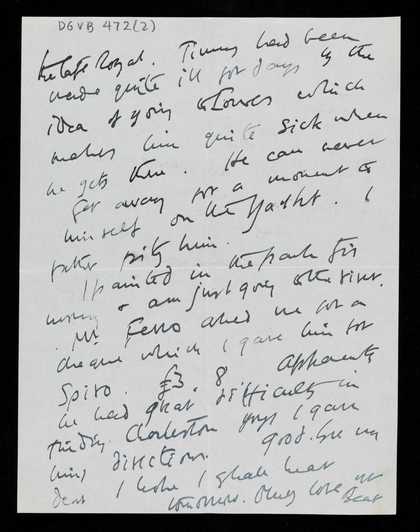 DGVB 472(2)
the Café Royal. Timmy had been
made quite ill for days by the
idea of going to Cowes which
makes him quite sick when
he gets there. He can never
get away for a moment to
himself on the Yacht. I
rather pity him.
I painted in the park this
morning & am just going to the river.
Mr Ferro asked me for a
cheque which I gave him for
Spiro. £3. 8 Apparently
he had great difficulty in
finding Charleston I gave
him directions. good-bye my
dear I hope I shall hear
tomorrow. Much love my
Bear